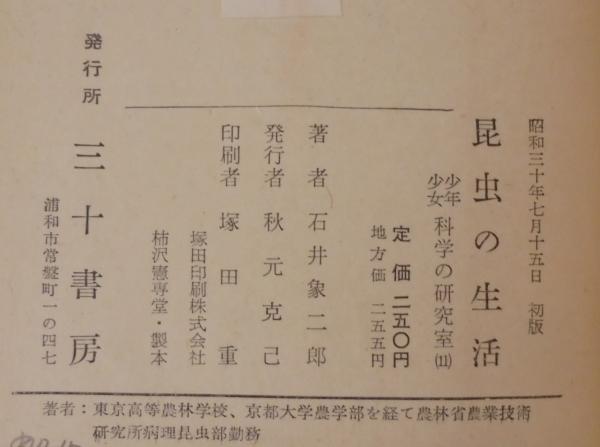 昭和三十年七月十五日　初版
昆虫の生活
少年少女 科学の研究室 (11)
定価 二五〇円
地方価 二五五円
著者 石井象二郎
発行者 秋元克己
印刷者 塚田重
塚田印刷株式会社
柿沢憲専堂・製本
発行所 三十書房
浦和市常盤町一の四七
著者：東京高等農林学校、京都大学農学部を経て農林省農業技術
研究所病理昆虫部勤務